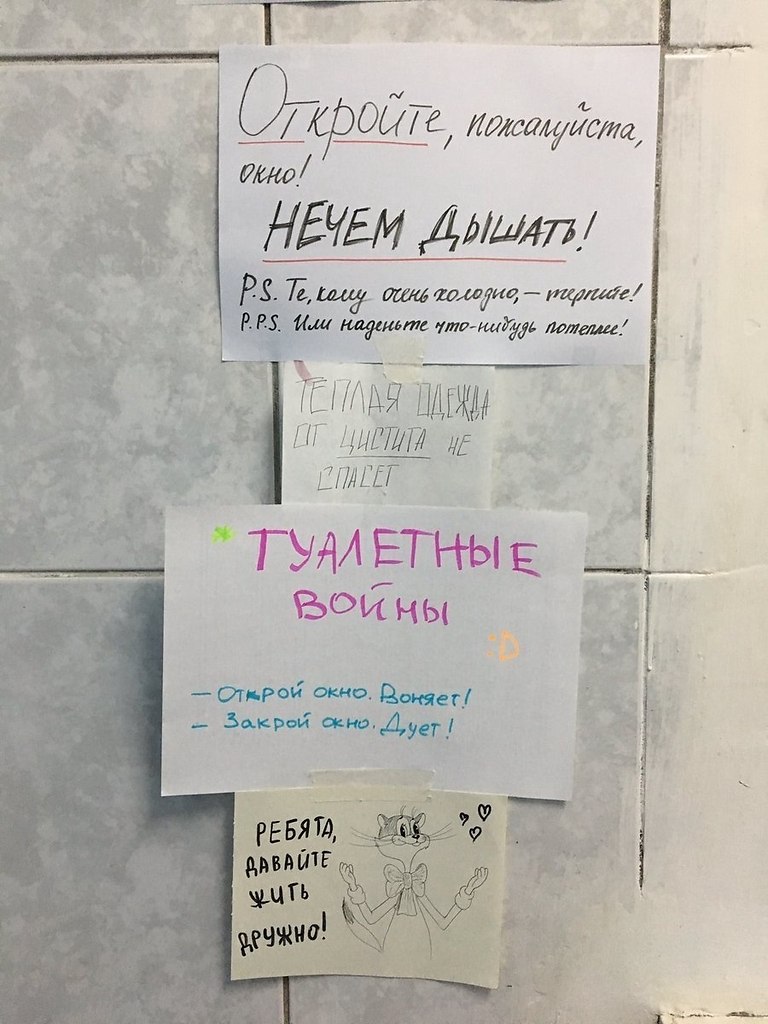 Откройте, пожалуйста,
окно!
НЕЧЕМ ДЫШАТЬ!
P.S. Те, кому очень холодно, – терпите!
P.P.S. Или наденьте что-нибудь потеплее!
ТЕПЛАЯ ОДЕЖДА
ОТ ЦИСТИТА НЕ
СПАСЕТ
* ТУАЛЕТНЫЕ
ВОЙНЫ
:D
– Открой окно. Воняет!
– Закрой окно. Дует!
РЕБЯТА,
ДАВАЙТЕ
ЖИТЬ
ДРУЖНО!